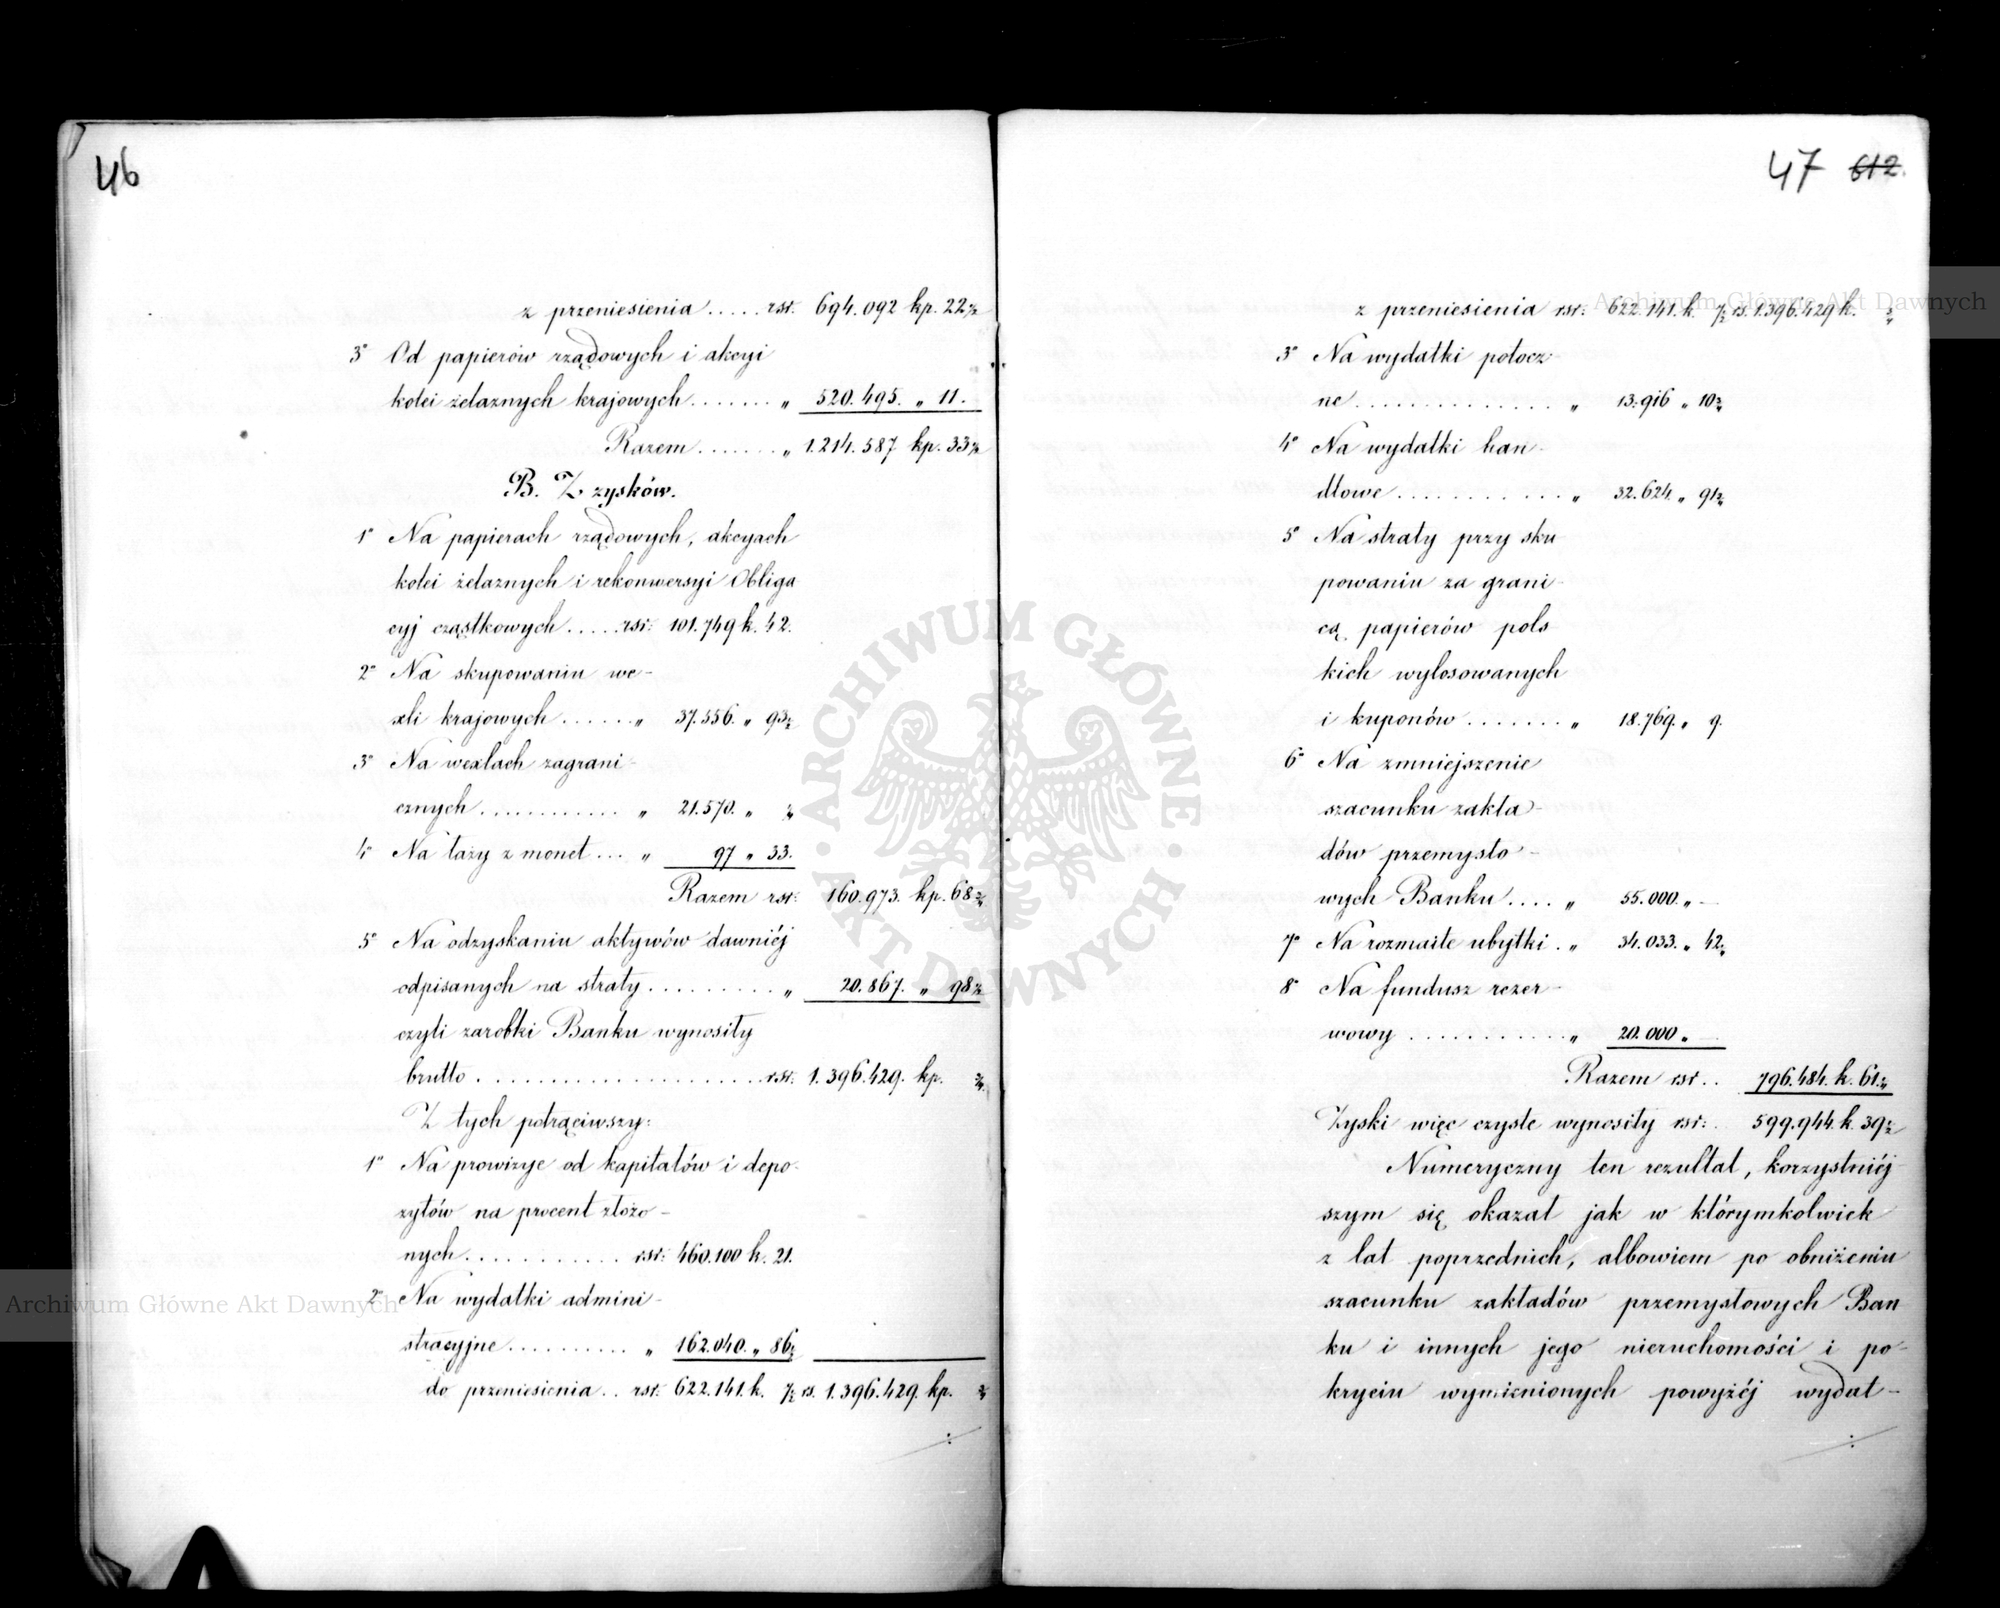 46
z przeniesienia ..... rsr. 694.092 kp. 22½
3° Od papierów rządowych i akcyi
kolei żelaznych krajowych ....... „ 520.495. „ 11.
Razem ....... „ 1.214.587 kp. 33½
B. Z zysków.
1° Na papierach rządowych, akcyach
kolei żelaznych i rekonwersyi Obliga
cyj cząstkowych ..... rsr: 101.749 k. 42.
2° Na skupowaniu we-
xli krajowych ...... „ 37.556. „ 93½
3° Na wexlach zagrani-
cznych ............ „ 21.570. „ ¼
4° Na aży z monet ... „ 97 „ 33.
Razem rsr: 160.973. kp. 68¾
5° Na odzyskaniu aktywów dawniéj
odpisanych na straty ......... „ 20.867. „ 98½
czyli zarobki Banku wynosiły
brutto ..................... rsr: 1.396.429. kp. ¾
Z tych potrąciwszy:
1° Na prowizye od kapitałów i depo-
zytów na procent złożo-
nych ............ rsr: 460.100 k. 21.
2° Na wydatki admini-
stracyjne .......... „ 162.040. „ 86½
do przeniesienia .. rsr: 622.141. k. 7½ rs. 1.396.429. kp. ¾
47 612.
z przeniesienia rsr: 622.141. k. 7½ rs. 1.396.429 k. ¾
3° Na wydatki potocz-
ne ................ „ 13.916 „ 10½
4° Na wydatki han-
dlowe ............ „ 32.624. „ 91½
5° Na straty przy sku
powaniu za grani-
cą papierów pols
kich wylosowanych
i kuponów ....... „ 18.769. „ 9.
6° Na zmniejszenie
szacunku zakła-
dów przemysło-
wych Banku .... „ 55.000. „ —
7° Na rozmaite ubytki . „ 34.033. „ 42¾
8° Na fundusz rezer-
wowy ........... „ 20.000 „ —
Razem rsr .. 796.484. k. 61¼
Zyski więc czyste wynosiły rsr: . 599.944. k. 39½
Numeryczny ten rezultat, korzystniéj
szym się okazał jak w którymkolwiek
z lat poprzednich, albowiem po obniżeniu
szacunku zakładów przemysłowych Ban
ku i innych jego nieruchomości i po-
kryciu wymienionych powyżéj wydat-
ARCHIWUM GŁÓWNE AKT DAWNYCH
Archiwum Główne Akt Dawnych
Archiwum Główne Akt Dawnych